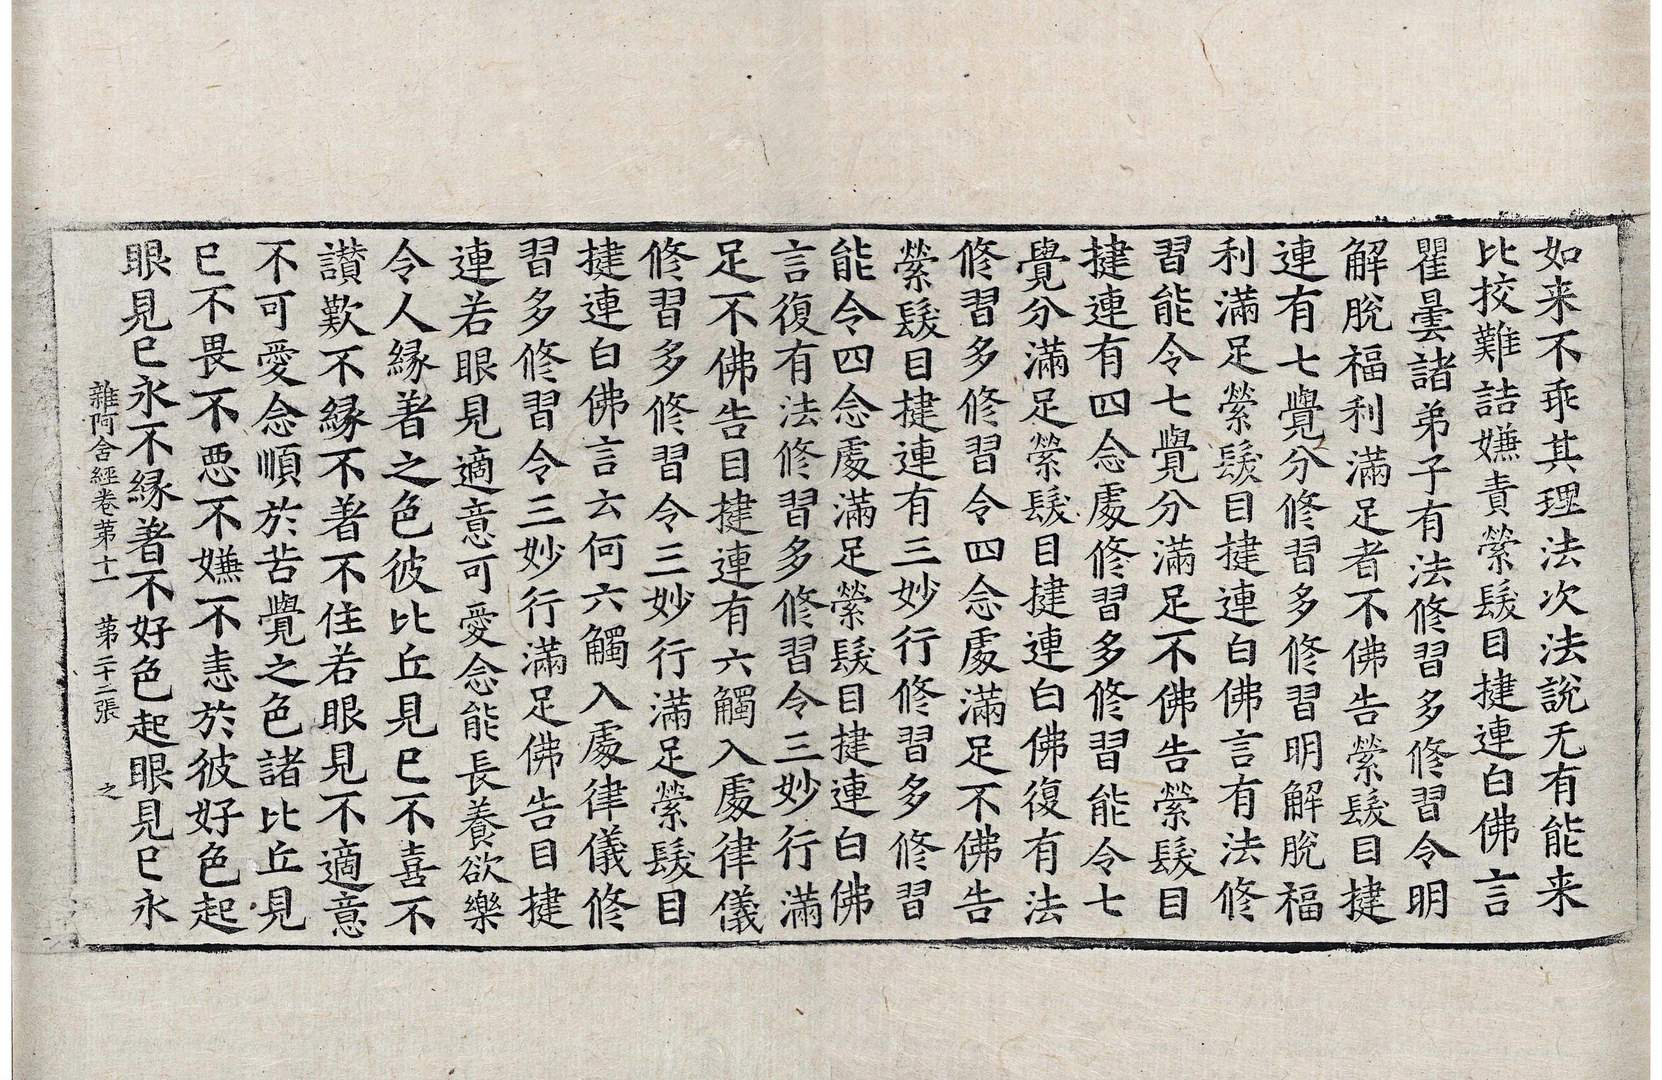 如来不乖其理法次法說无有能来
比挍難詰嫌責縈髮目揵連白佛言
瞿曇諸弟子有法修習多修習令明
解脫福利滿足者不佛告縈髮目揵
連有七覺分修習多修習明解脫福
利滿足縈髮目揵連白佛言有法修
習能令七覺分滿足不佛告縈髮目
揵連有四念處修習多修習能令七
覺分滿足縈髮目揵連白佛復有法
修習多修習令四念處滿足不佛告
縈髮目揵連有三妙行修習多修習
能令四念處滿足縈髮目揵連白佛
言復有法修習多修習令三妙行滿
足不佛告目揵連有六觸入處律儀
修習多修習令三妙行滿足縈髮目
揵連白佛言云何六觸入處律儀修
習多修習令三妙行滿足佛告目揵
連若眼見適意可愛念能長養欲樂
令人緣著之色彼比丘見已不喜不
讃歎不緣不著不住若眼見不適意
不可愛念順於苦覺之色諸比丘見
已不畏不惡不嫌不恚於彼好色起
眼見已永不緣著不好色起眼見已永
雜阿含經卷苐十一 苐二十二張 之